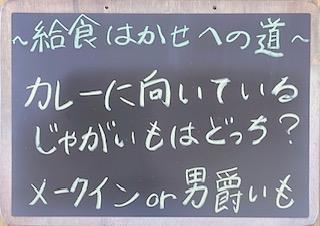 ~給食はかせへの道~
カレーに向いている
じゃがいもはどっち?
メークイン or 男爵いも